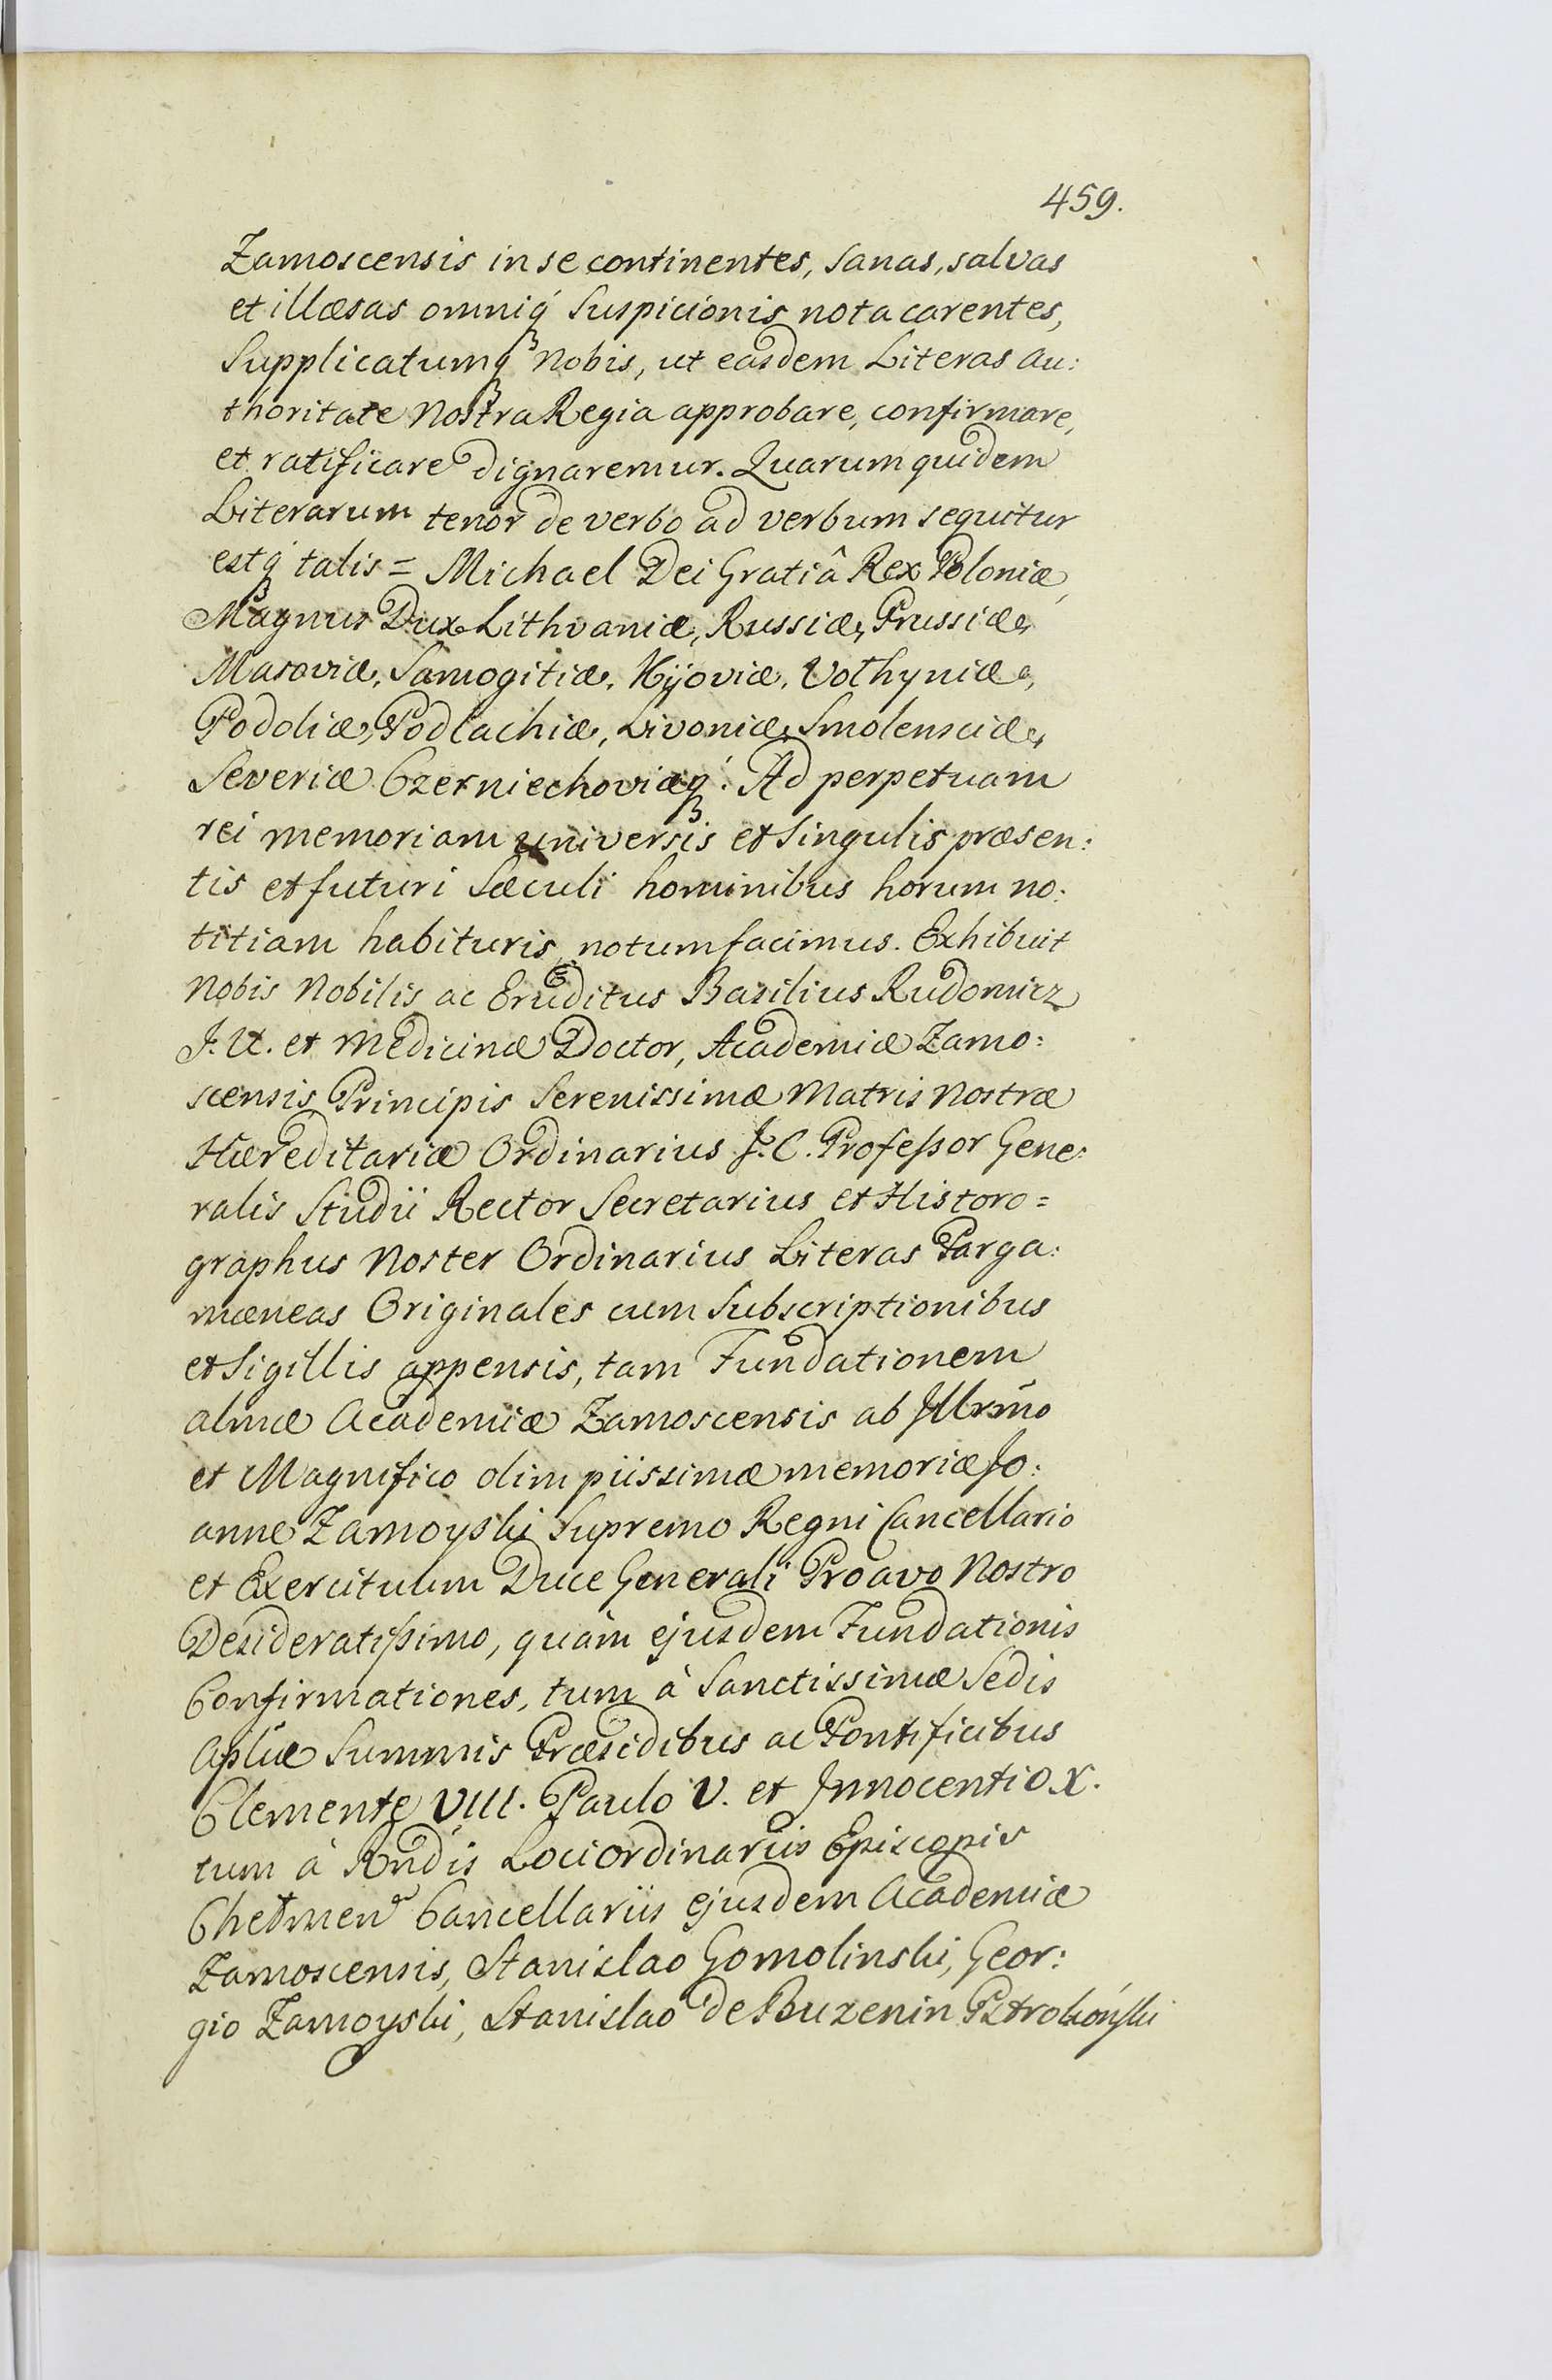 459.
Zamoscensis in se continentes, sanas, salvas
et illæsas omniq́ꝫ Suspicionis nota carentes,
Supplicatumq́ꝫ Nobis, ut easdem Literas au:
thoritate Nostra Regia approbare, confirmare,
et ratificare dignaremur. Quarum quidem
Literarum tenor de verbo ad verbum sequitur
estq́ꝫ talis = Michael Dei Gratiâ Rex Poloniæ,
Magnus Dux Lithvaniæ, Russiæ, Prussiæ,
Masoviæ, Samogitiæ, Kijoviæ, Volhyniæ,
Podoliæ, Podlachiæ, Livoniæ, Smolensciæ,
Severiæ Czerniechoviæq́ꝫ. Ad perpetuam
rei memoriam universis et singulis præsen:
tis et futuri Sæculi hominibus horum no:
titiam habituris, notum facimus. Exhibuit
Nobis Nobilis ac Eruditus Basilius Rudomicz
J. U. et Medicinæ Doctor, Academiæ Zamo:
scensis Principis Serenissimæ Matris Nostræ
Hæreditariæ Ordinarius J. C. Professor Gene:
ralis Studii Rector Secretarius et Historo=
graphus Noster Ordinarius Literas Parga:
mæneas Originales cum Subscriptionibus
et Sigillis appensis, tam Fundationem
almæ Academiæ Zamoscensis ab Illrmo
et Magnifico olim piissimæ memoriæ Jo:
anne Zamoyski Supremo Regni Cancellario
et Exercituum Duce Generali Proavo Nostro
Desideratissimo, quàm ejusdem Fundationis
Confirmationes, tum à Sanctissimæ Sedis
Aplicæ Summis Præsidibus ac Pontificibus
Clemente VIII. Paulo V. et Innocentio X.
tum à Rndis Loci ordinariis Episcopis
Chełmen Cancellariis ejusdem Academiæ
Zamoscensis, Stanislao Gomolinski, Geor:
gio Zamoyski, Stanislao de Buzenin Pstrokoński